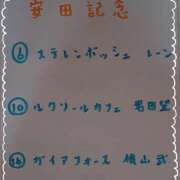 安田記念
⑥ ステレンボッシュ レーン
⑩ ルクソールカフェ 岩田望
⑭ ガイアフォース 横山武